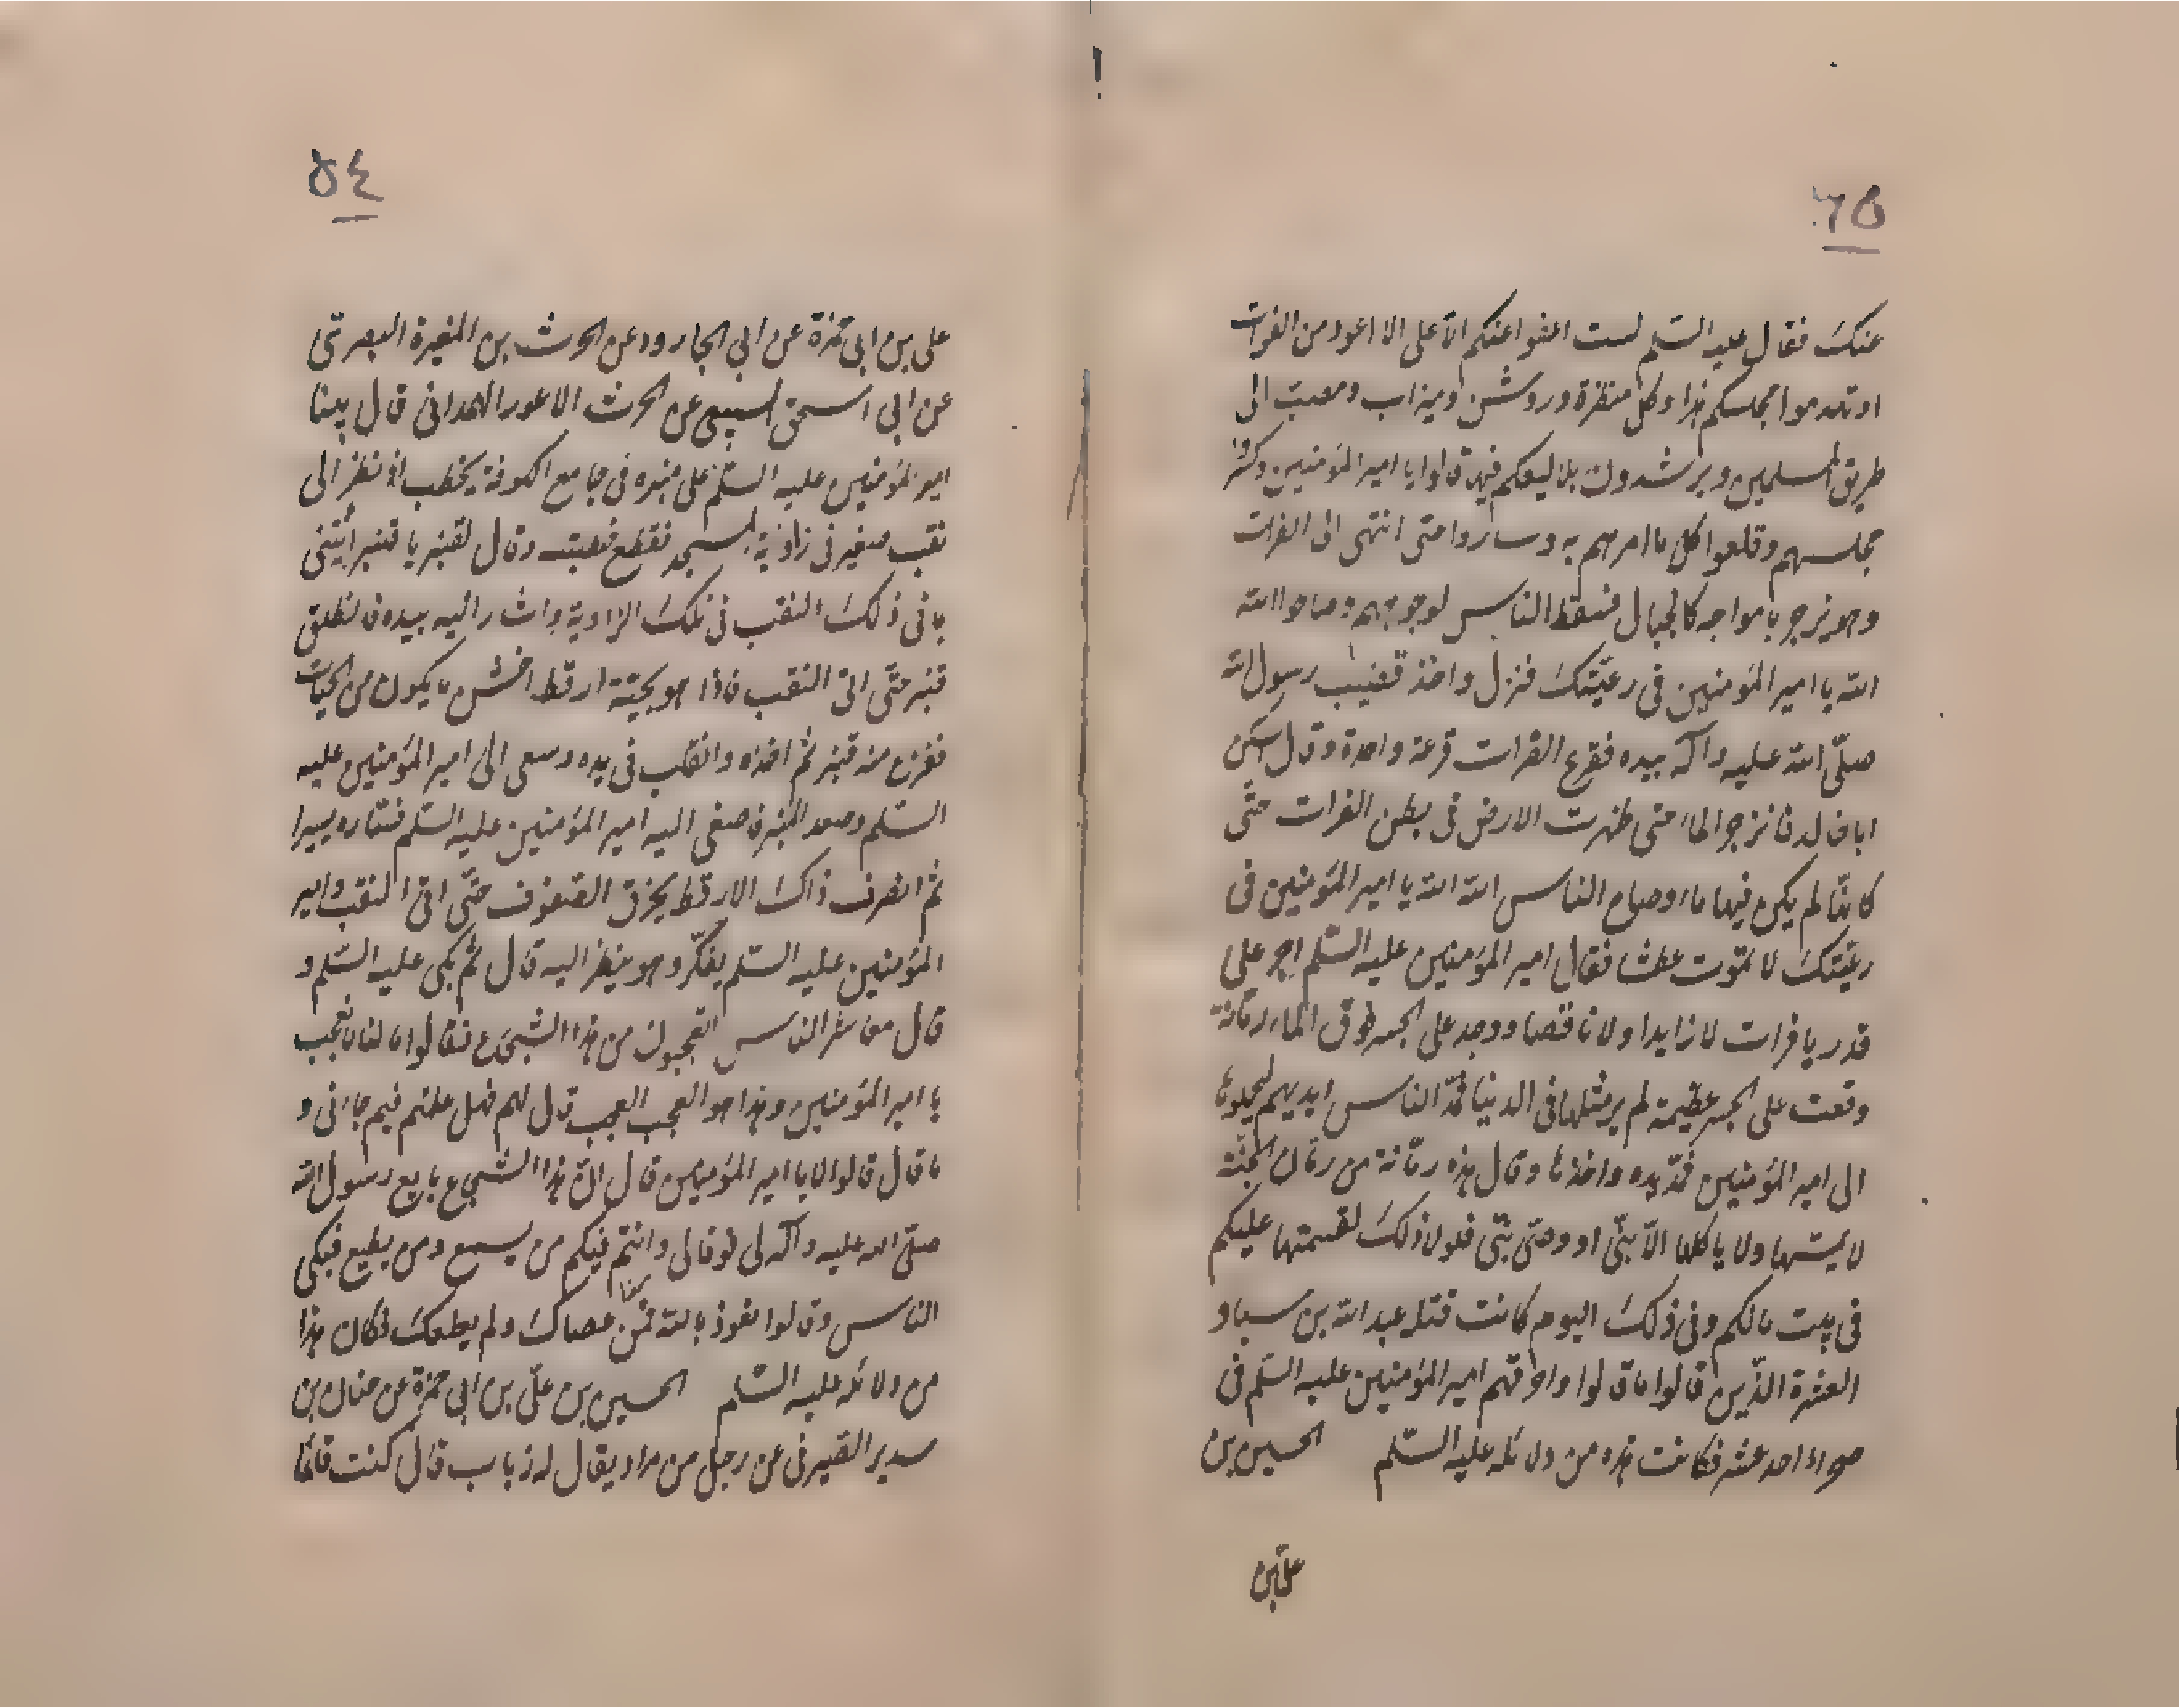 ٦٥
عنك فقال عليه السلم لست اعفوا عنكم الا على الا اعود من الفرات
او تهدموا مجلسكم هذا وكل منظرة وروشن وميزاب ومصب الى
طريق المسلمين وير بلا ليعكم فيها قالوا يا امير المؤمنين وكسروا
مجلسهم وقلعوا كل ما امرهم به وساروا حتى انتهى الى الفرات
وهو يزجر بامواجه كالجبال فسقط الناس لوجوههم وصاحوا الله
الله يا امير المؤمنين فى رعيتك فنزل واخذ قضيب رسول الله
صلى الله عليه وآله بيده فقرع الفرات قرعة واحدة وقال اسكن
ابا خالد فانزجر الماء حتى ظهرت الارض فى بطن الفرات حتى
كانها لم يكن فيها ماء وصاح الناس الله الله يا امير المؤمنين فى
رعيتك لا تموت عطشا فقال امير المؤمنين عليه السلم اجر على
قدر يا فرات لا زايدا ولا ناقصا ووجد على الجسر فوق الماء رمانة
وقعت على الجسر عظيمة لم ير مثلها فى الدنيا فمد الناس ايديهم ليحملوها
الى امير المؤمنين فمد يده واخذها وقال هذه رمانة من رمان الجنة
لا يمسها ولا ياكلها الا نبى او وصى نبى فلولا ذلك لقسمتها عليكم
فى بيت مالكم وفى ذلك اليوم كانت قتلة عبد الله بن سبا و
العشرة الذين قالوا ما قالوا واحرقهم امير المؤمنين عليه السلم فى
صحراء احد عشر فكانت هذه من دلائله عليه السلم الحسين بن
على بن
٥٤
على بن ابى حمزة عن ابى الجارود عن الحرث بن المغيرة البصرى
عن ابى اسحق السبيعى عن الحرث الاعور الهمدانى قال بينا
امير المؤمنين عليه السلم على منبره فى جامع الكوفة يخطب اذ نظر الى
نقب صغير فى زاوية المسجد فقطع خطبته وقال لقنبر يا قنبر ائتنى
بما فى ذلك النقب فى تلك الزاوية واشار اليه بيده فانطلق
قنبر حتى اتى النقب فاذا هو بحية ارقط اخشن ما يكون من الحيات
ففزع منه قنبر ثم اخذه وانقلب فى يده وسعى الى امير المؤمنين عليه
السلم وصعد المنبر فاصغى اليه امير المؤمنين عليه السلم فساره يسيرا
ثم انصرف ذاك الارقط يخرق الصفوف حتى اتى النقب وامير
المؤمنين عليه السلم يفكر وهو ينظر اليه قال ثم بكى عليه السلم و
قال معاشر الناس اتعجبون من هذا الشجاع فقالوا ما لنا لا نعجب
يا امير المؤمنين وهذا هو العجب العجب قال لهم فهل علمتم فيم جاءنى و
ما قال قالوا لا يا امير المؤمنين قال ان هذا الشجاع بايع رسول الله
صلى الله عليه وآله لى فوفا لى وانتم فيكم من يسمع ومن يطيع فبكى
الناس وقالوا نعوذ بالله ممن عصاك ولم يطعك فكان هذا
من دلائله عليه السلم الحسين بن على بن ابى حمزة عن حنان بن
سدير الصيرفى عن رجل من مراد يقال له ذباب قال كنت قائما